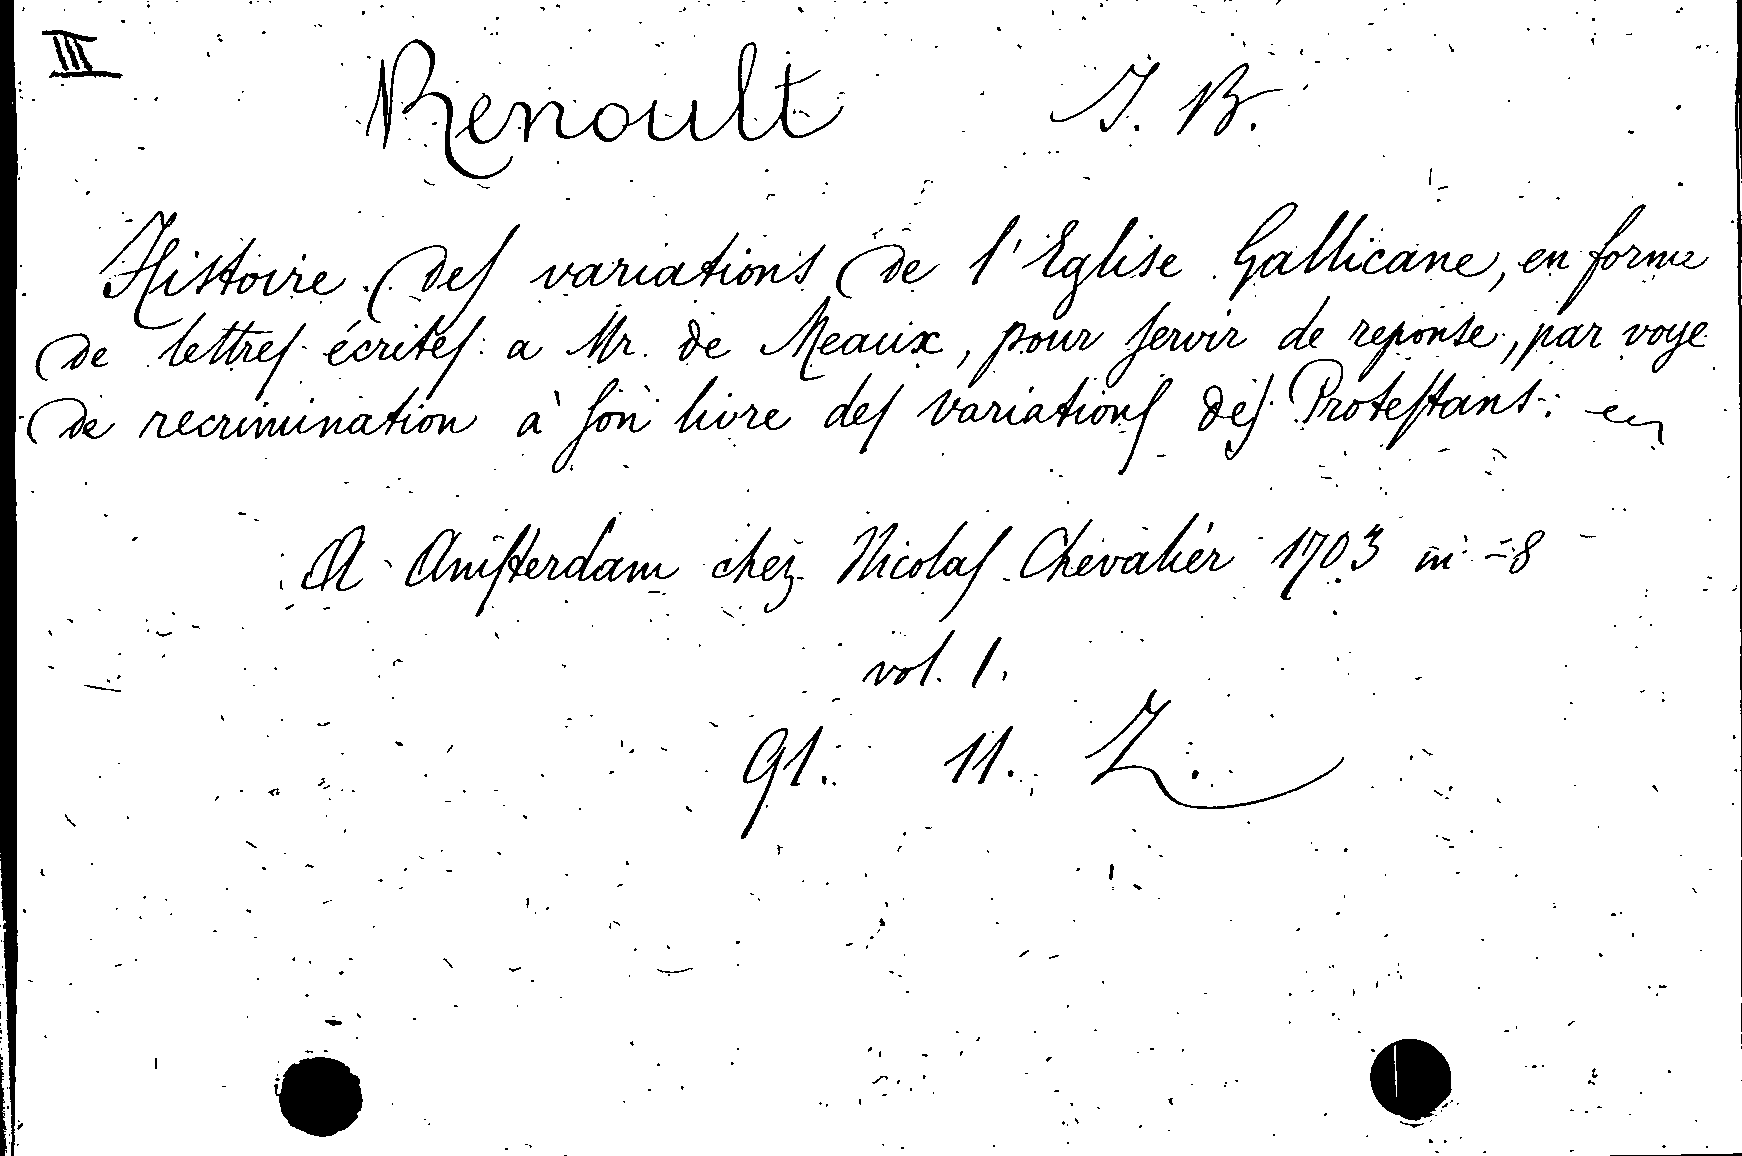 III
Renoult J. B.
Histoire des variations de l'Eglise Gallicane, en forme
de lettres écrites a Mr. de Meaux, pour servir de reponse, par voye
de recrimination à son livre des variations des Protestans:
A Amsterdam chez Nicolas Chevalier 1703 in =8
vol. 1.
91. 11. Z.